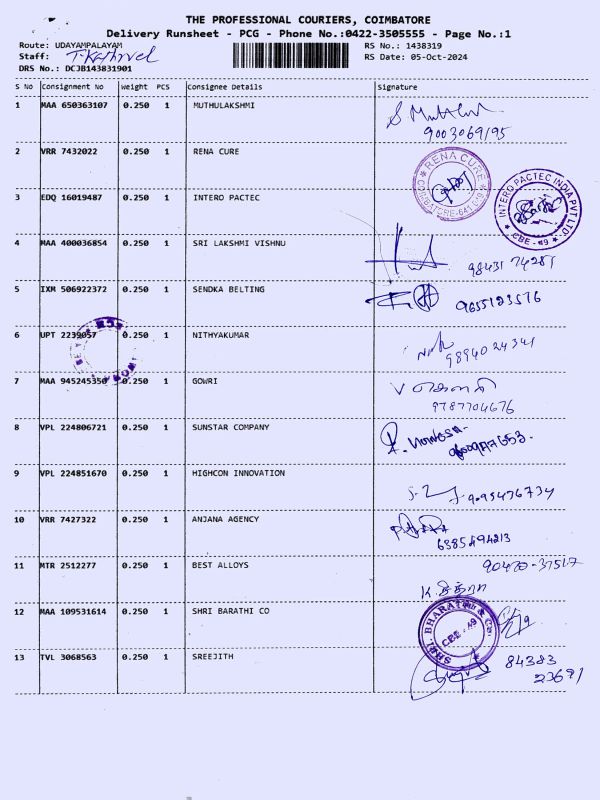 THE PROFESSIONAL COURIERS, COIMBATORE
Delivery Runsheet - PCG - Phone No.:0422-3505555 - Page No.:1
Route: UDAYAMPALAYAM RS No.: 1438319
Staff: T.Kathirvel RS Date: 05-Oct-2024
DRS No.: DCJB143831901
S No Consignment No Weight PCS Consignee Details Signature
1 MAA 650363107 0.250 1 MUTHULAKSHMI
9003069195
2 VRR 7432022 0.250 1 RENA CURE
RENA CURE
3 EDQ 16019487 0.250 1 INTERO PACTEC
INTERO PACTEC INDIA PVT LTD. CBE - 49
4 MAA 400036854 0.250 1 SRI LAKSHMI VISHNU
98431 74281
5 IXM 506922372 0.250 1 SENDKA BELTING
9655123576
6 UPT 2239057 0.250 1 NITHYAKUMAR
98940 24341
7 MAA 945245350 0.250 1 GOWRI
9787704676
8 VPL 224806721 0.250 1 SUNSTAR COMPANY
9 VPL 224851670 0.250 1 HIGHCON INNOVATION
9095476734
10 VRR 7427322 0.250 1 ANJANA AGENCY
6385494213
11 MTR 2512277 0.250 1 BEST ALLOYS
90470-37517
K சித்ரா
12 MAA 109531614 0.250 1 SHRI BARATHI CO
SHRI. BHARATHI & Co. CBE - 49
13 TVL 3068563 0.250 1 SREEJITH
84383
23691